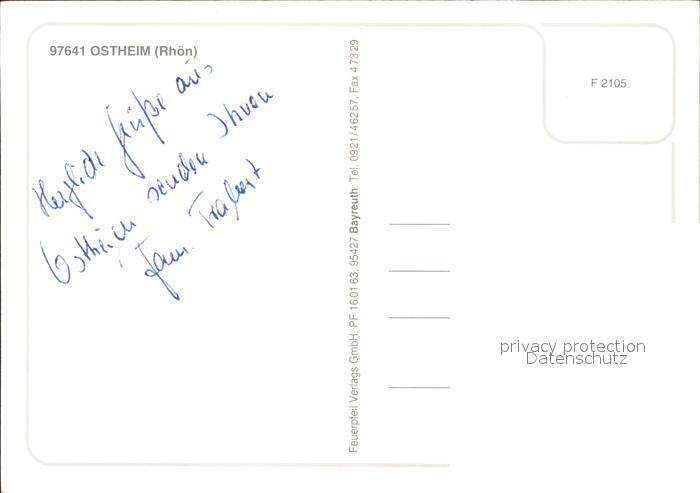 97641 OSTHEIM (Rhön)
Herzliche Grüße aus
Ostheim senden Ihnen
Fam. Trabert
Feuerpfeil Verlags GmbH, PF 160163, 95427 Bayreuth, Tel. 0921/46257, Fax 47329
F 2105
privacy protection
Datenschutz